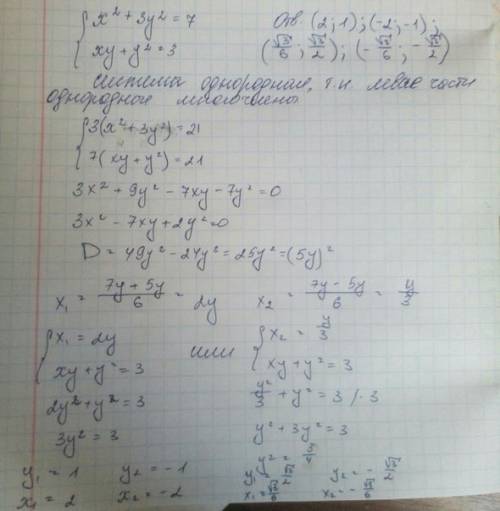 { x² + 3y² = 7
{ xy + y² = 3
Отв. (2; 1); (-2; -1);
(√3/6; √3/2); (-√3/6; -√3/2)
система однородная, т.н. левые части
однородные многочлены
{ 3(x² + 3y²) = 21
{ 7(xy + y²) = 21
3x² + 9y² - 7xy - 7y² = 0
3x² - 7xy + 2y² = 0
D = 49y² - 24y² = 25y² = (5y)²
x₁ = (7y + 5y)/6 = 2y   x₂ = (7y - 5y)/6 = y/3
{ x₁ = 2y   или   { x₂ = y/3
{ xy + y² = 3   { xy + y² = 3
2y² + y² = 3   y²/3 + y² = 3 /·3
3y² = 3   y² + 3y² = 3
y₁ = 1   y₂ = -1   y² = 3/4
x₁ = 2   x₂ = -2   y₁ = √3/2   y₂ = -√3/2
x₁ = √3/6   x₂ = -√3/6